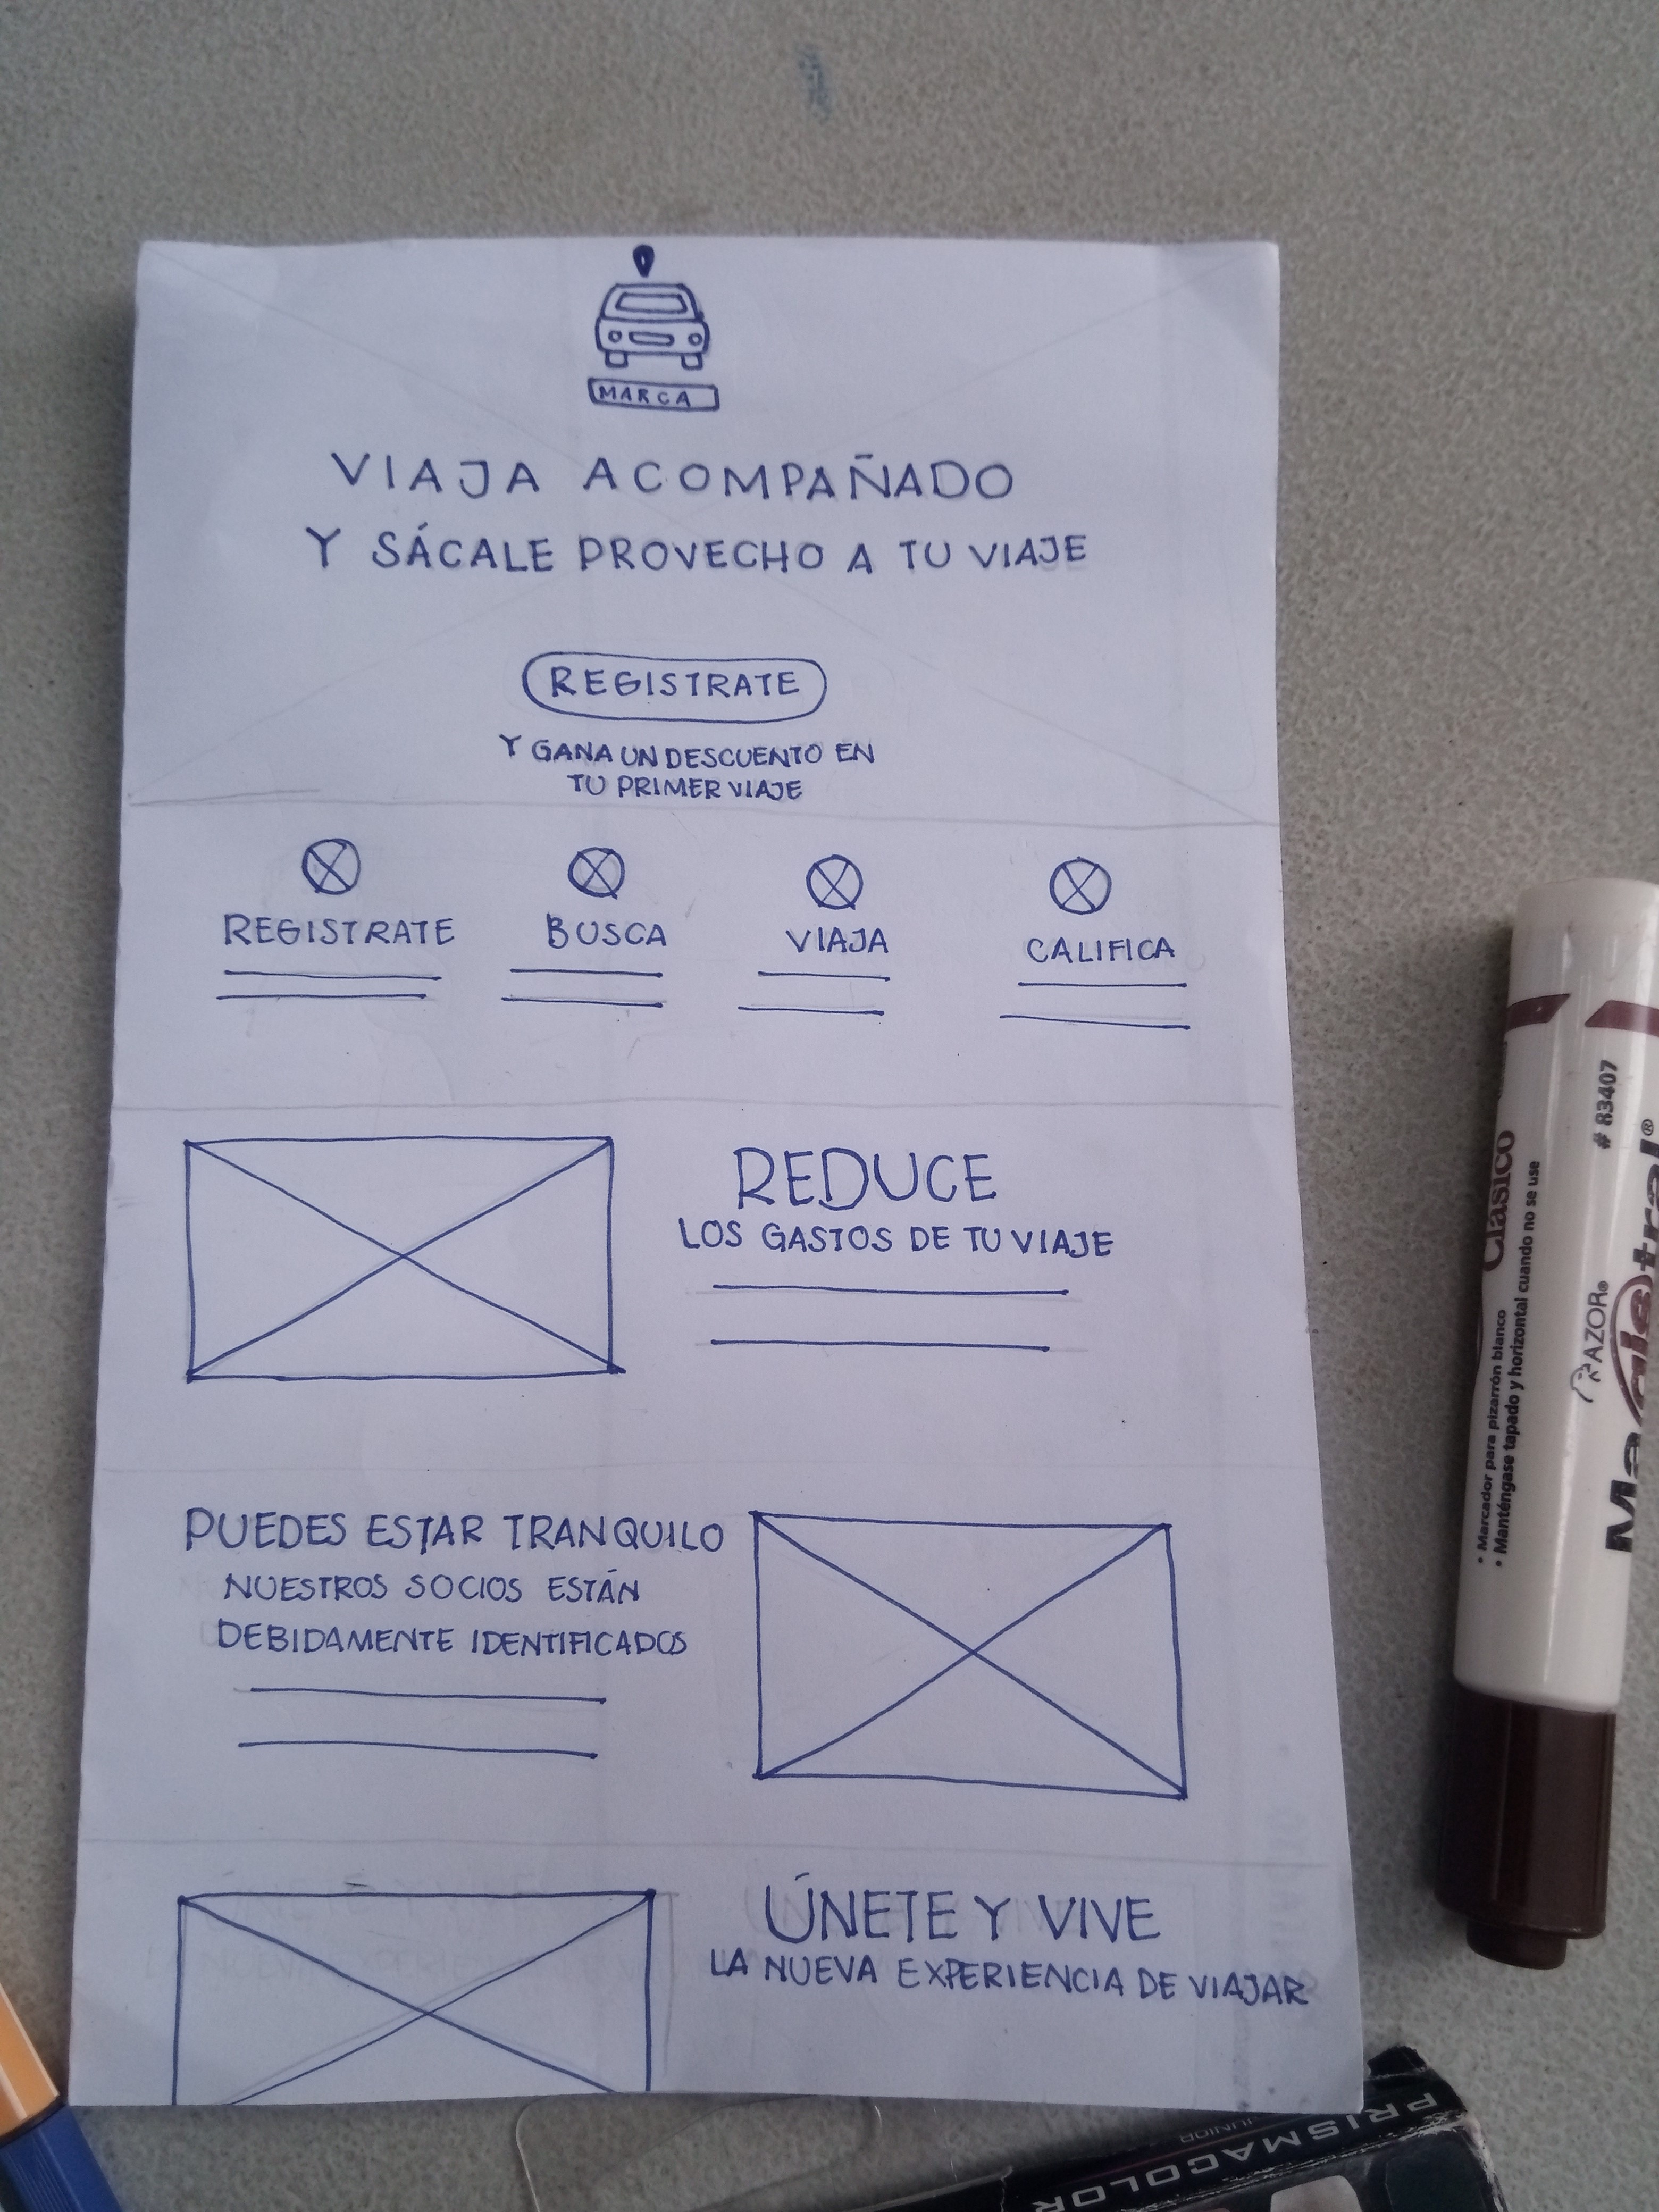 MARCA
VIAJA ACOMPAÑADO
Y SÁCALE PROVECHO A TU VIAJE
REGISTRATE
Y GANA UN DESCUENTO EN
TU PRIMER VIAJE
REGISTRATE BUSCA VIAJA CALIFICA
REDUCE
LOS GASTOS DE TU VIAJE
PUEDES ESTAR TRANQUILO
NUESTROS SOCIOS ESTÁN
DEBIDAMENTE IDENTIFICADOS
ÚNETE Y VIVE
LA NUEVA EXPERIENCIA DE VIAJAR
Clásico
# 83407
• Marcador para pizarrón blanco
• Manténgase tapado y horizontal cuando no se use
AZOR®
Magistral®
PRISMACOLOR
JUNIOR
PRISMACOLOR